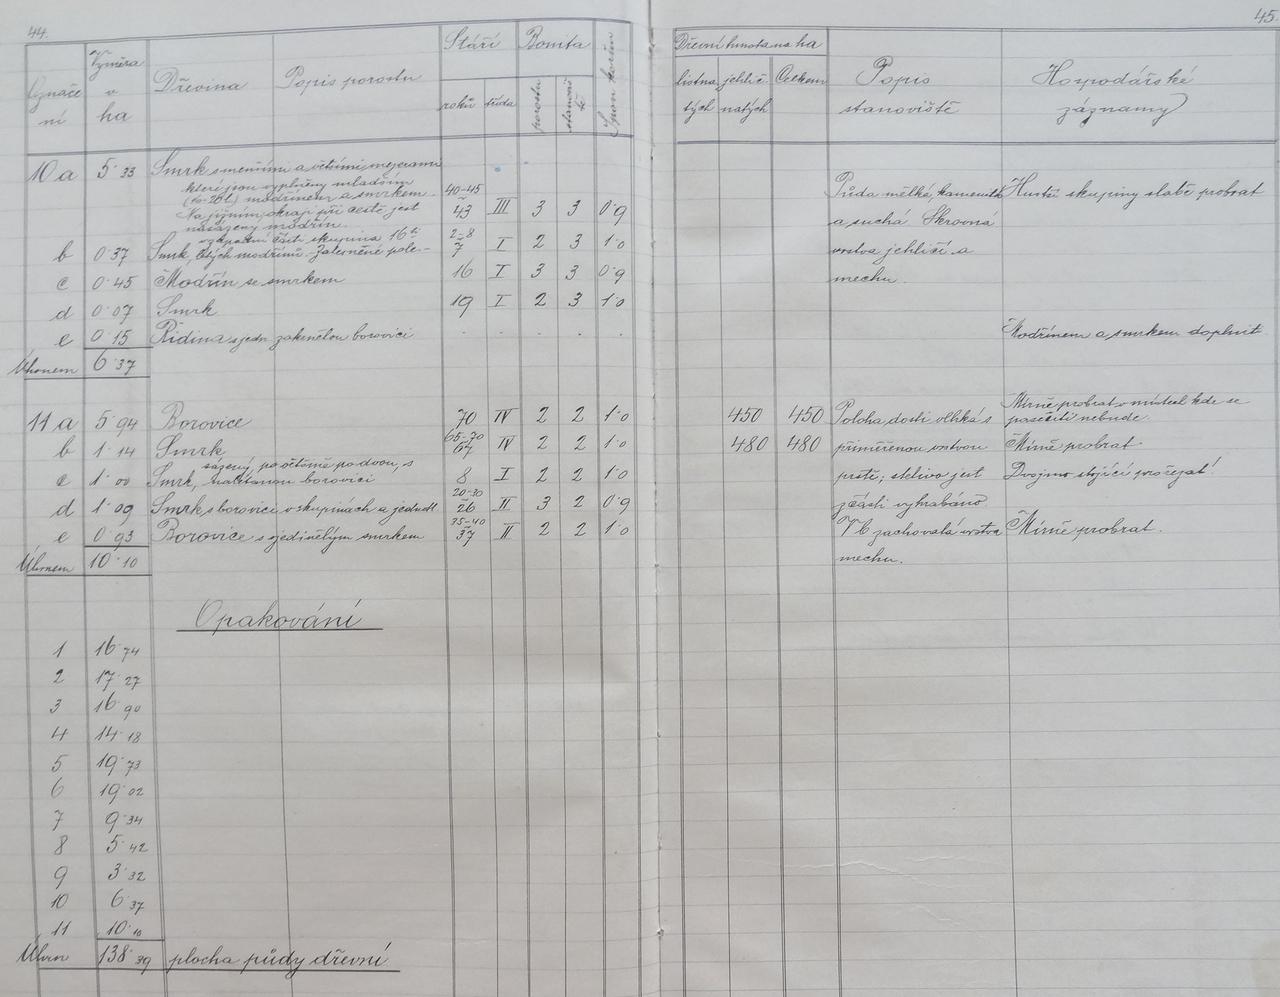 44.
45.
Označení
Výměra v ha
Dřevina
Popis porostu
Stáří
roků
třída
Bonita
porostu
stanoviště
Dřevní hmota na ha
listnatých
jehličnatých
Celkem
Popis stanoviště
Hospodářské záznamy
10 a 5·33 Smrk s menšími a většími mezerami
které jsou vyplněny mladším
modřínem a smrkem.
Na jižním okraji při cestě jest
nasázený modřín. 40-45 43 III 3 3 0·9
Půda mělká, kamenitá
a suchá. Skrovná
vrstva jehličí a
mechu.
Hustě skupiny slabě probrat
v západní části skupina 16ti
b 0·37 Smrk, letých modřínů. 2-8 7 I 2 3 1·0
c 0·45 Modřín se smrkem 16 I 3 3 0·9
d 0·07 Smrk 19 I 2 3 1·0
e 0·15 Ridina s jedn. zakrnělou borovicí
Modřínem a smrkem doplnit.
Úhrnem 6·37
11 a 5·94 Borovice 70 IV 2 2 1·0 450 450 Poloha dosti vlhká s
Mírně probrat v místech kde se
pasečiti nebude.
b 1·14 Smrk 65-70 67 IV 2 2 1·0 480 480 přiměřenou vrstvou Mírně probrat.
sázený, po většině po dvou, s
c 1·00 Smrk, nalétanou borovicí 8 I 2 2 1·0 prstě; stelivo jest Dvojmo stojící prořezat!
d 1·09 Smrk s borovicí v skupinách a jednotl. 20-30 26 II 3 2 0·9 zčásti vyhrabáno.
e 0·93 Borovice s ojedinělým smrkem 35-40 37 II 2 2 1·0 V b zachovalá vrstva Mírně probrat.
mechu.
Úhrnem 10·10
Opakování
1 16·74
2 17·27
3 16·90
4 14·18
5 19·73
6 19·02
7 9·34
8 5·42
9 3·32
10 6·37
11 10·10
Úhrn 138·39 plocha půdy dřevní.